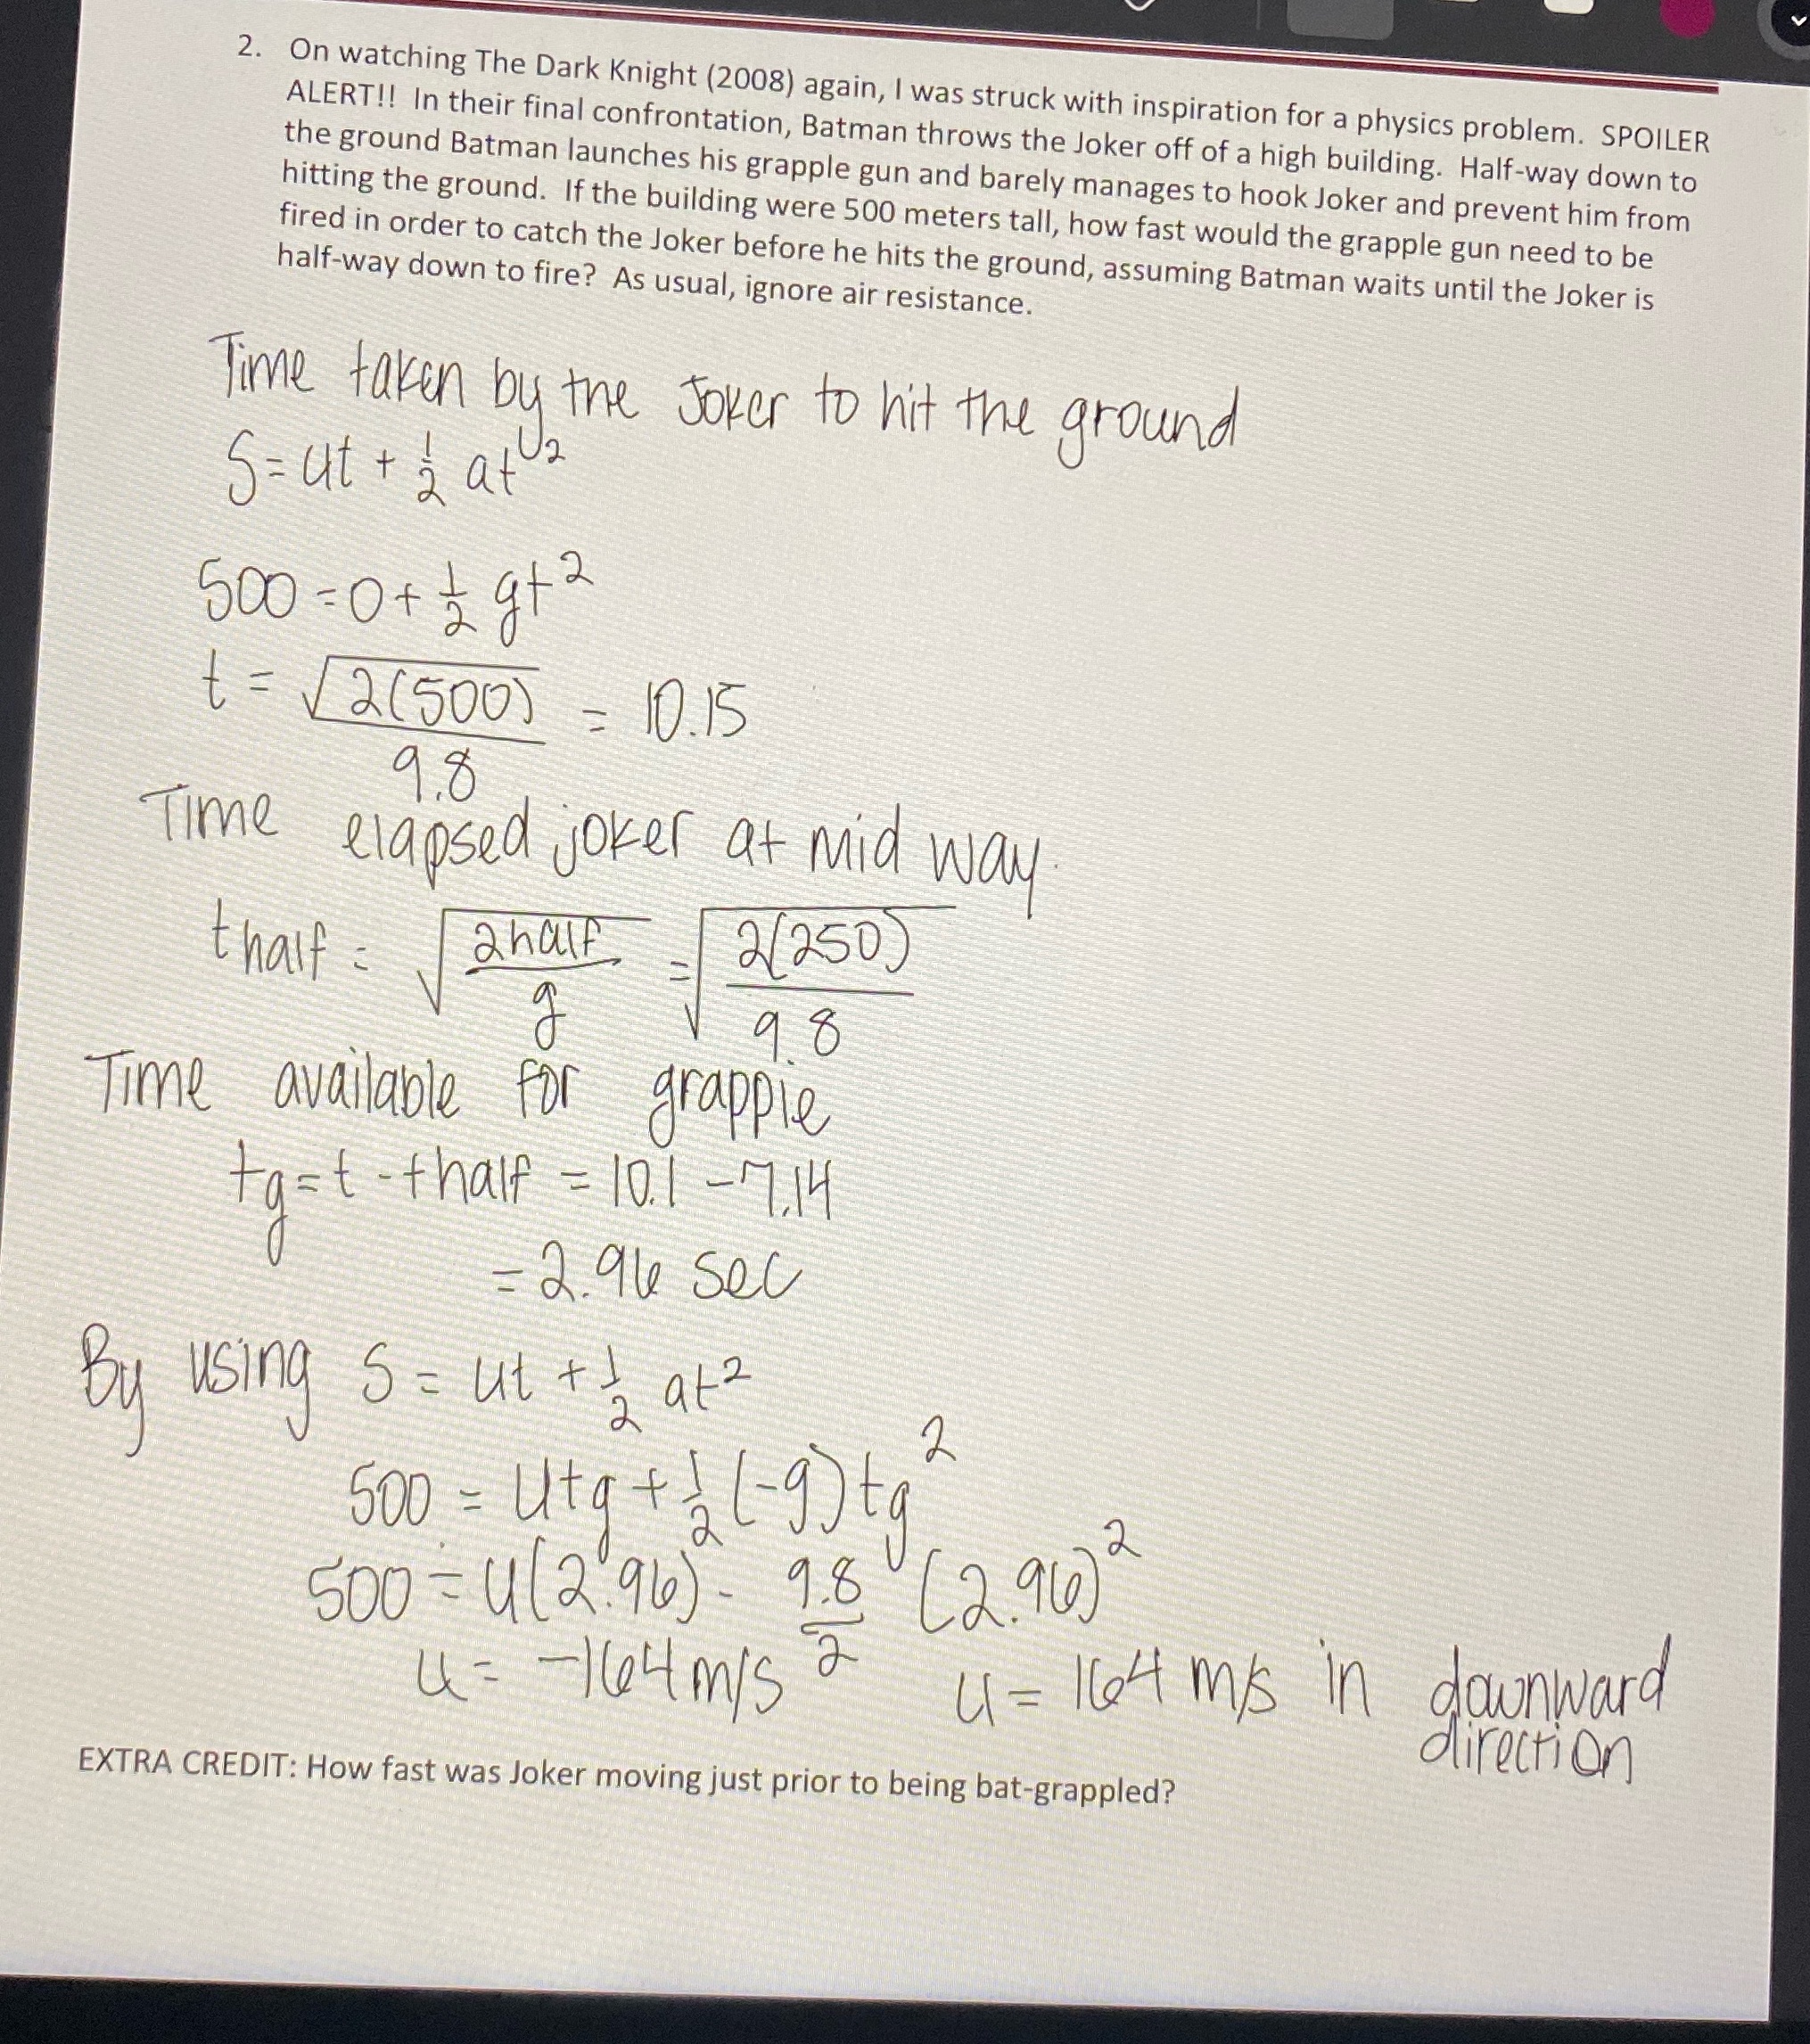 2. On watching The Dark Knight (2008) again, I was struck with inspiration for a physics problem. SPOILER
ALERT!! In their final confrontation, Batman throws the Joker off of a high building. Half-way down to
the ground Batman launches his grapple gun and barely manages to hook Joker and prevent him from
hitting the ground. If the building were 500 meters tall, how fast would the grapple gun need to be
fired in order to catch the Joker before he hits the ground, assuming Batman waits until the Joker is
half-way down to fire? As usual, ignore air resistance.
Time taken by the Joker to hit the ground
S = ut + 1/2 at^2
500 = 0 + 1/2 gt^2
t = √2(500)/9.8 = 10.15
Time elapsed joker at mid way.
t half = √(2half/g) = √(2(250)/9.8)
Time available for grapple
tg = t - t half = 10.1 - 7.14
= 2.96 sec
By using S = ut + 1/2 at^2
500 = utg + 1/2 (-g) tg^2
500 = u(2.96) - 9.8/2 (2.96)^2
u = -164 m/s u = 164 m/s in downward
direction
EXTRA CREDIT: How fast was Joker moving just prior to being bat-grappled?